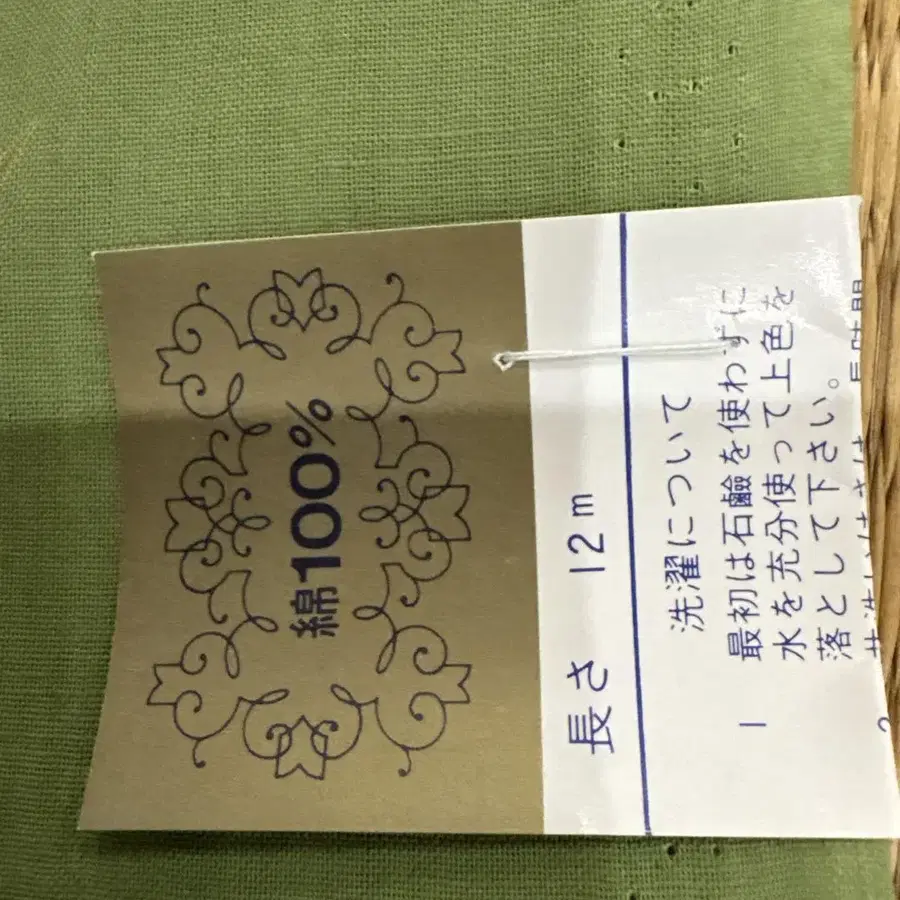 綿100%
長さ 12m
洗濯について
1 最初は石鹼を使わずに
水を充分使って上色を
落として下さい。
2